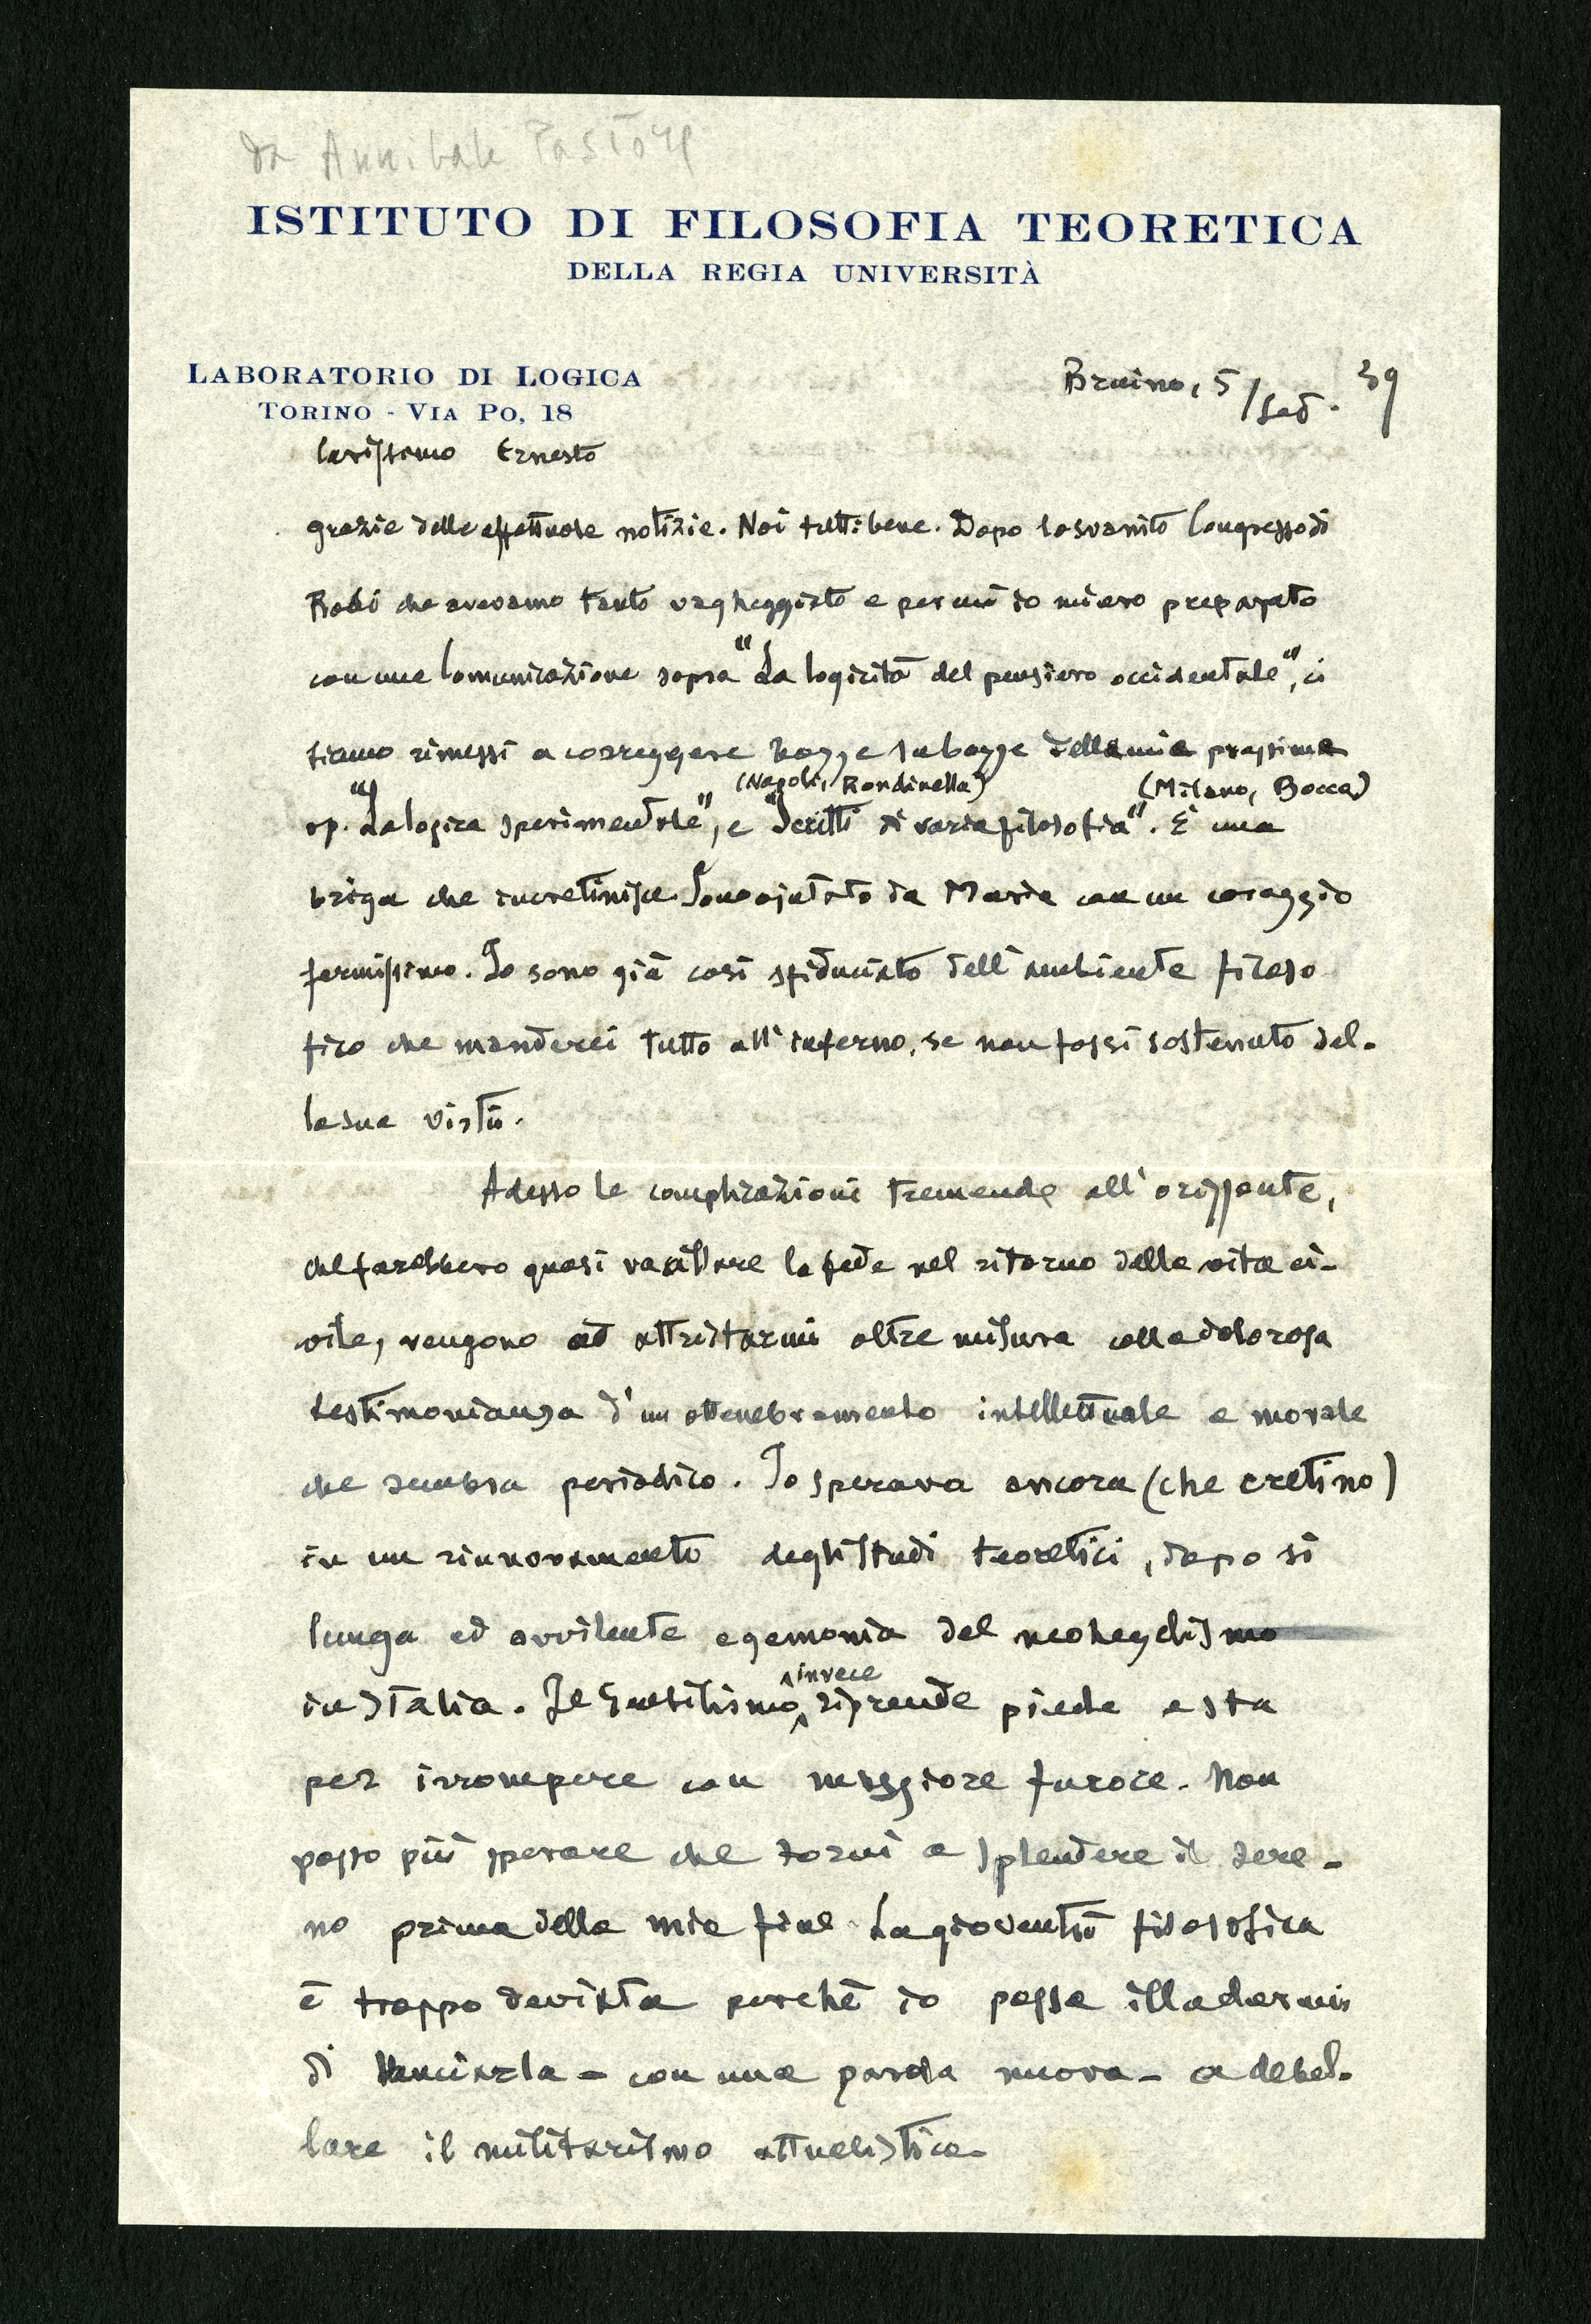 da Annibale Pastore
ISTITUTO DI FILOSOFIA TEORETICA
DELLA REGIA UNIVERSITÀ
LABORATORIO DI LOGICA
TORINO - VIA PO, 18
Bruino, 5/Set. 39
Carissimo Ernesto
grazie delle affettuose notizie. Noi tutti bene. Dopo lo svanito Congresso di
che avevamo tanto vagheggiato e per cui io mi ero preparato
con una Comunicazione sopra "La logicità del pensiero occidentale", ci
siamo rimessi a correggere bozze su bozze della mia prossima
(Napoli, Rondinella) (Milano, Bocca)
op. "La logica sperimentale", e "Scritti di varia filosofia". È una
briga che incretinisce. Sono ajutato da Maria con un coraggio
fermissimo. Io sono già così sfiduciato dell'ambiente filoso
fico che manderei tutto all'inferno, se non fossi sostenuto dal-
la sua virtù.
Adesso le complicazioni tremende all'orizzonte,
che farebbero quasi vacillare la fede nel ritorno della vita ci-
vile, vengono ad attristarmi oltre misura colla dolorosa
testimonianza d'un ottenebramento intellettuale e morale
che sembra periodico. Io sperava ancora (che cretino)
in un rinnovamento degli studi teoretici, dopo sì
lunga ed avvilente egemonia del neohegelismo
invece
in Italia. Il Gentilismo riprende piede e sta
per irrompere con maggiore furore. Non
posso più sperare che torni a splendere il sere-
no prima della mia fine. La gioventù filosofica
è troppo deviata perchè io possa illudermi
di lanciarla - con una parola nuova - a debel-
lare il militarismo attualistico.